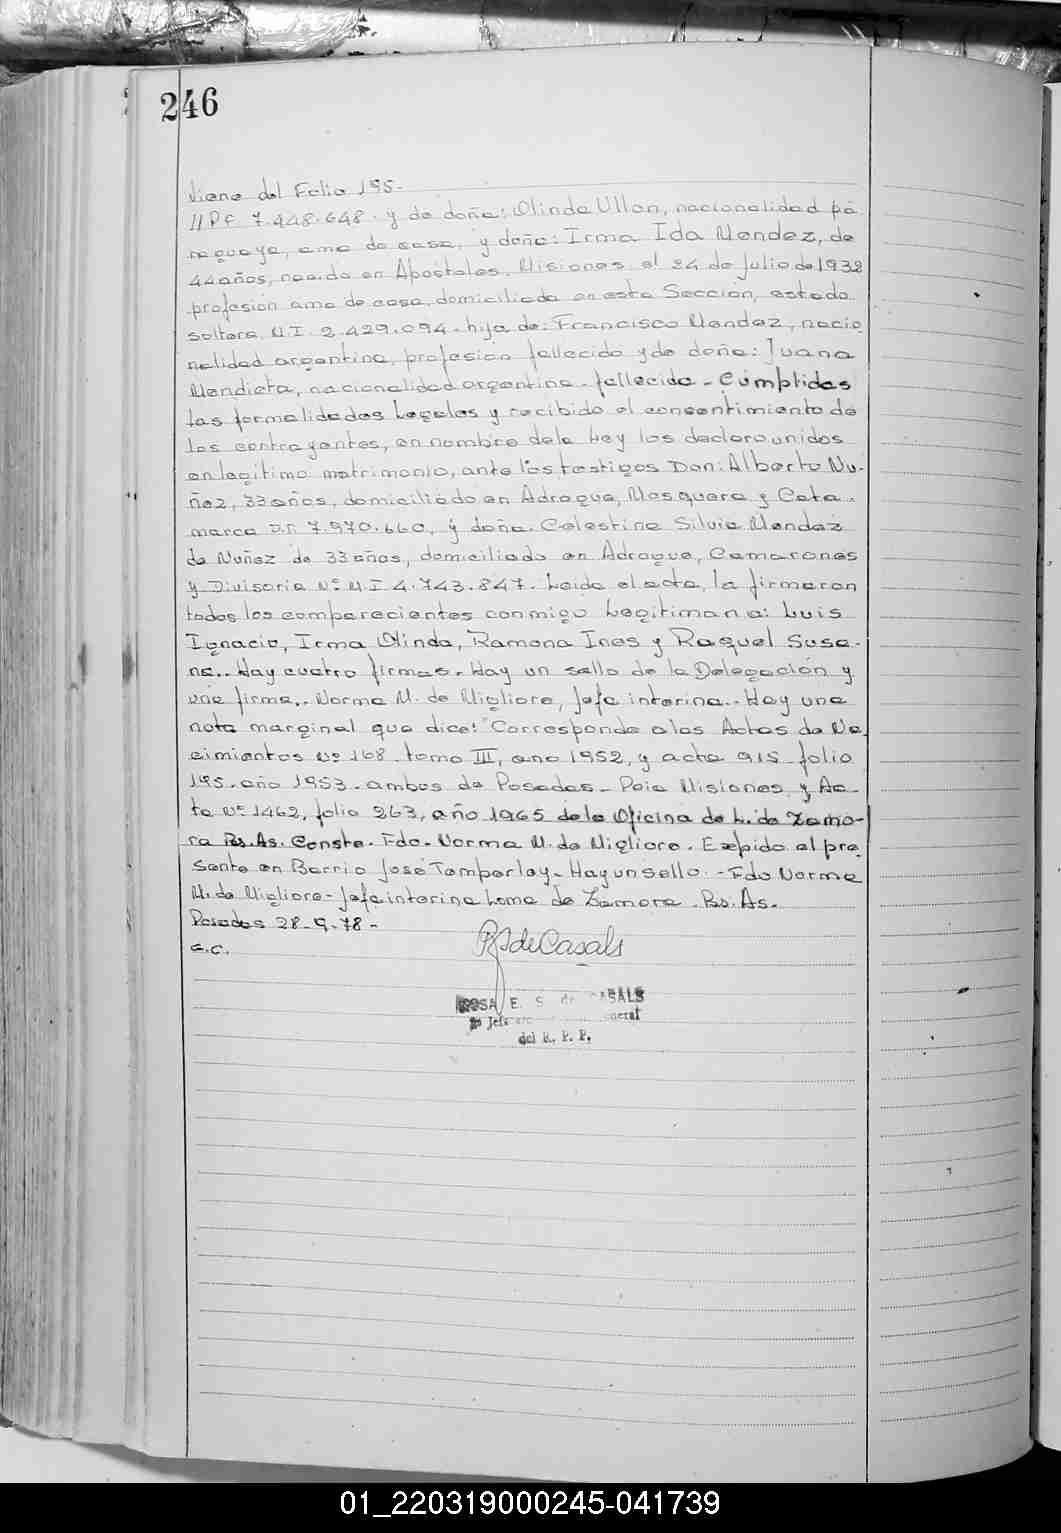 246
Viene del Folio 195.
//Pf 7.448.648. y de doña: Olinda Ullon, nacionalidad pa
raguaya, ama de casa, y doña: Irma Ida Mendez, de
44 años, nacida en Apóstoles, Misiones el 24 de Julio de 1932
profesión ama de casa, domiciliada en esta Sección, estado
soltera M.I. 2.429.094. hija de: Francisco Mendez, nacio
nalidad argentina, profesion fallecido y de doña: Juana
Mendieta, nacionalidad argentina. fallecida - Cumplidas
las formalidades Legales y recibido el consentimiento de
los contrayentes, en nombre de la Ley los declaro unidos
en legitimo matrimonio, ante los testigos Don: Alberto Nu-
ñez, 33 años, domiciliado en Adrogue, Mosquera y Cata-
marca D.I. 7.970.660, y doña. Celestina Silvia Mendez
de Nuñez de 33 años, domiciliado en Adrogue, Camarones
y Divisoria Nº M.I 4.743.847. Leida el acta, la firmaron
todos los comparecientes conmigo Legitiman a: Luis
Ignacio, Irma Olinda, Ramona Ines y Raquel Susa-
na.. Hay cuatro firmas. Hay un sello de la Delegación y
una firma.. Norma M. de Migliore, Jefa interina.. Hay una
nota marginal que dice: "Corresponde a las Actas de Na-
cimientos Nº 168. tomo III, año 1952, y acta 915 folio
195. año 1953. ambos de Posadas - Pcia Misiones y Ac-
ta Nº 1462, folio 263, año 1965 de la Oficina de L. de Zamo-
ra Bs. As. Conste. Fdo. Norma M. de Migliore. Expido el pre
sente en Barrio José Temperley. Hay un sello. - Fdo Norma
M. de Migliore - Jefa interina Loma de Zamora. Bs. As.
Posadas 28-9-78-
G.C.
RSdeCasals
ROSA E. S. de CASALS
del R. P. P.
01_220319000245-041739